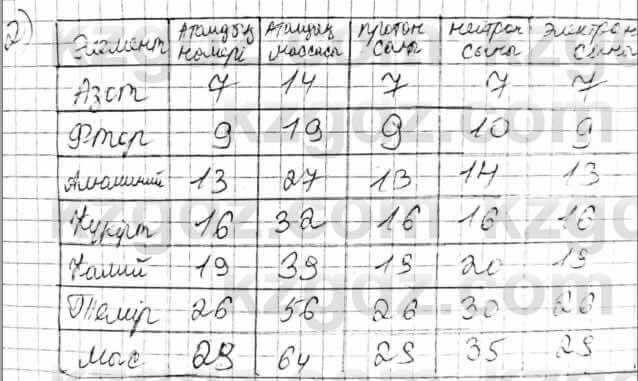 2)
Элемент Атомдық номері Атомдық массасы протон саны нейтрон саны электрон саны
Азот 7 14 7 7 7
Фтор 9 19 9 10 9
Алюминий 13 27 13 14 13
Күкірт 16 32 16 16 16
Калий 19 39 19 20 19
Темір 26 56 26 30 26
Мыс 29 64 29 35 29
kzgdz.com